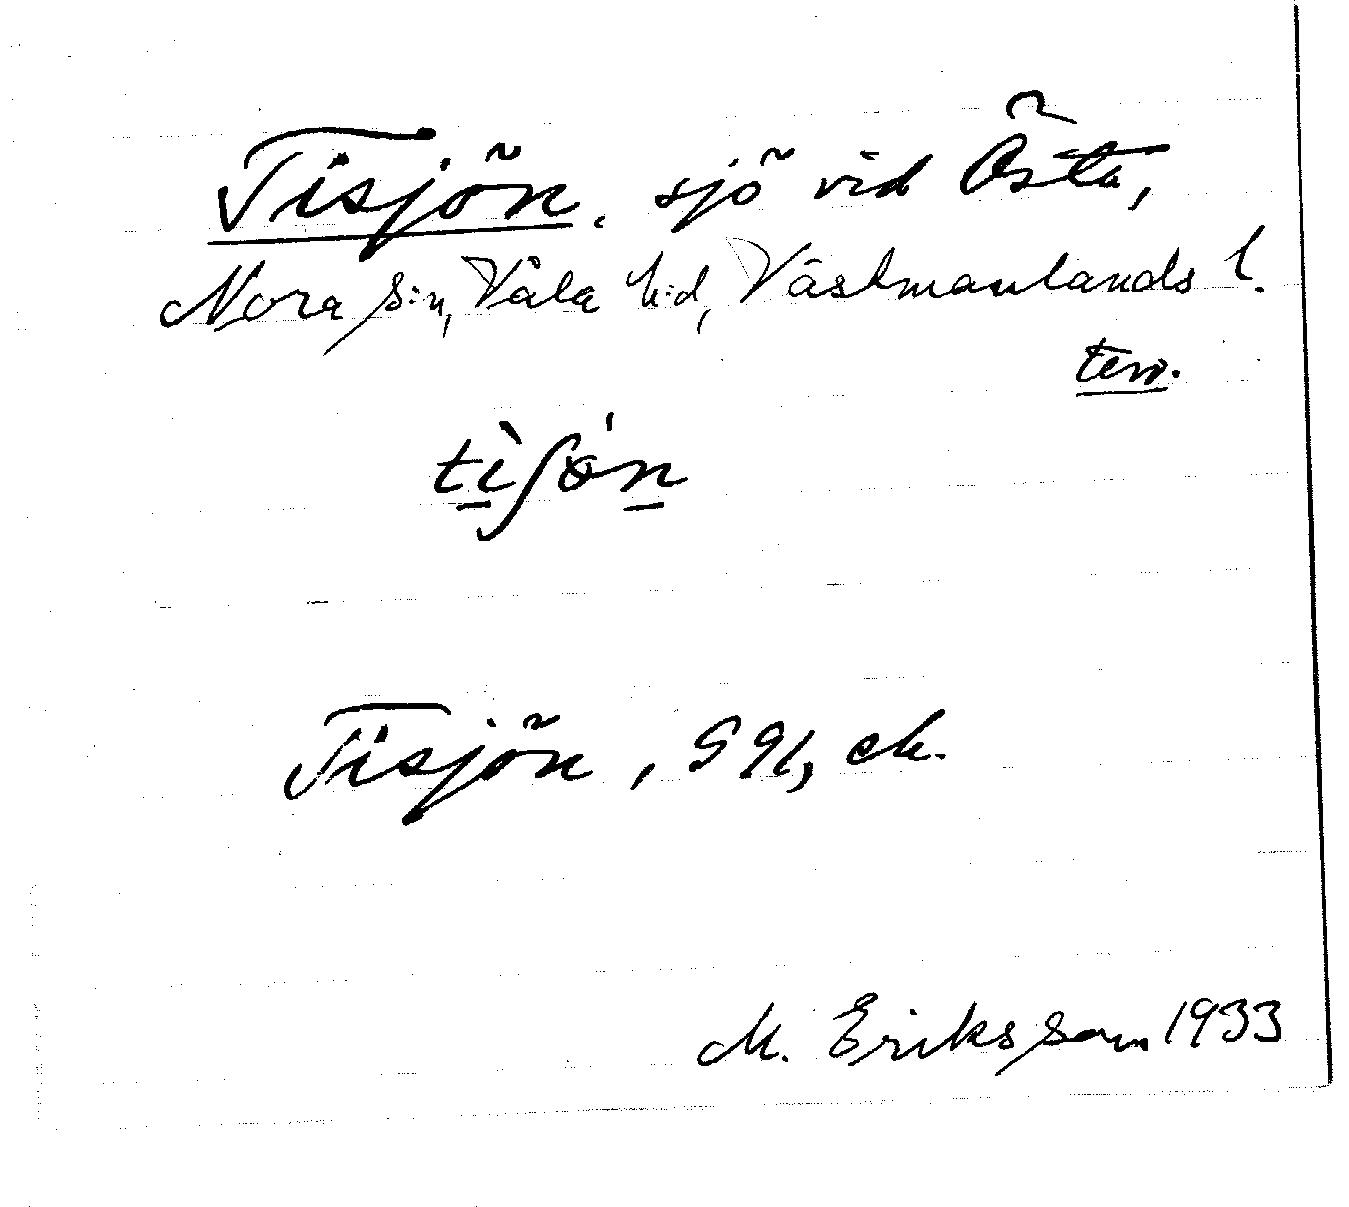 Tisjön, sjö vid Östa,
Nora s:n, Våla h:d, Västmanlands l.
terr.
tìʃön
Tisjön, G 91, ek.
M. Eriksson 1933